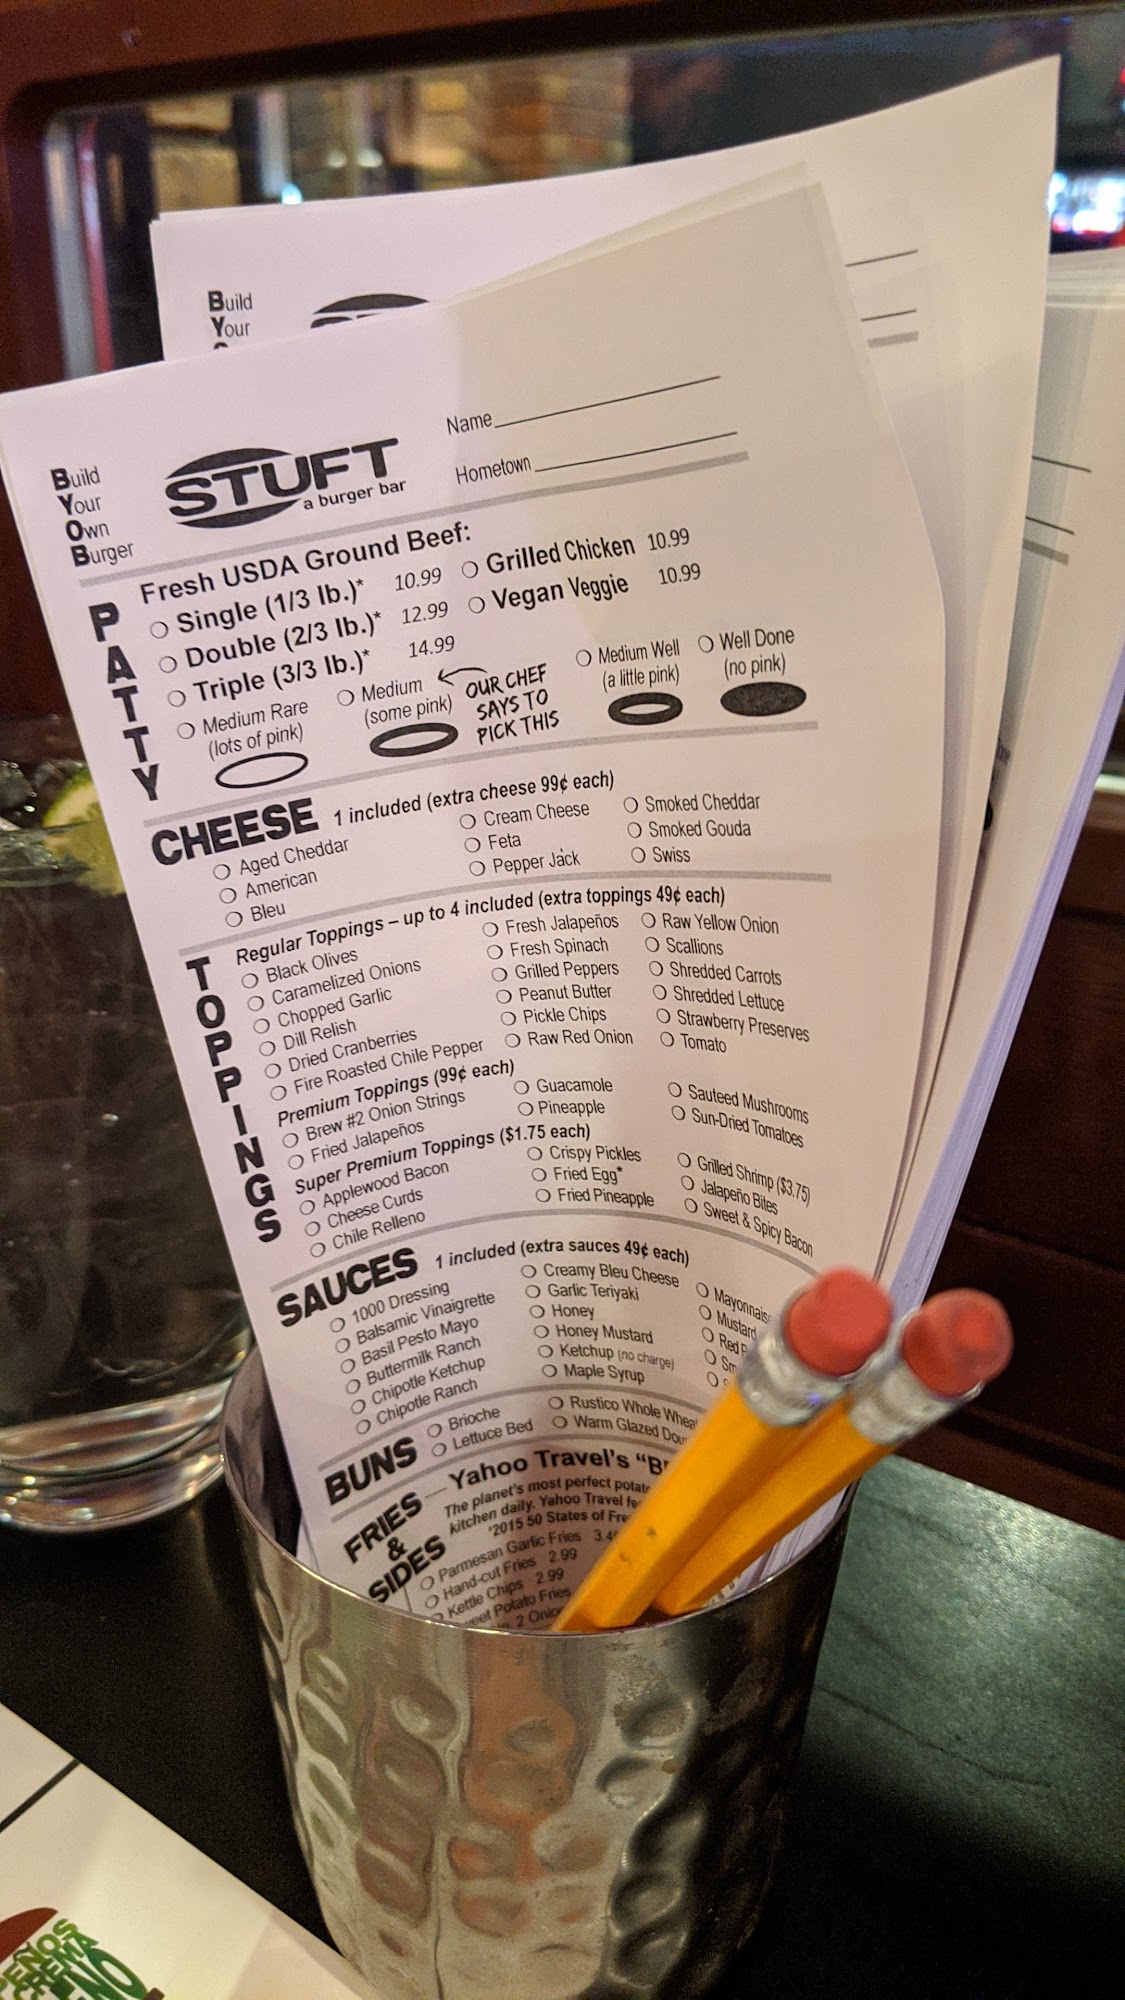 Build
Your
Build
Your
Own
Burger
STUFT
a burger bar
Name
Hometown
PATTY
Fresh USDA Ground Beef:
Single (1/3 lb.)* 10.99
Double (2/3 lb.)* 12.99
Triple (3/3 lb.)* 14.99
Grilled Chicken 10.99
Vegan Veggie 10.99
Medium Rare
(lots of pink)
Medium
(some pink)
OUR CHEF
SAYS TO
PICK THIS
Medium Well
(a little pink)
Well Done
(no pink)
CHEESE 1 included (extra cheese 99¢ each)
Aged Cheddar
American
Bleu
Cream Cheese
Feta
Pepper Jack
Smoked Cheddar
Smoked Gouda
Swiss
TOPPINGS
Regular Toppings – up to 4 included (extra toppings 49¢ each)
Black Olives
Caramelized Onions
Chopped Garlic
Dill Relish
Dried Cranberries
Fire Roasted Chile Pepper
Fresh Jalapeños
Fresh Spinach
Grilled Peppers
Peanut Butter
Pickle Chips
Raw Red Onion
Raw Yellow Onion
Scallions
Shredded Carrots
Shredded Lettuce
Strawberry Preserves
Tomato
Premium Toppings (99¢ each)
Brew #2 Onion Strings
Fried Jalapeños
Guacamole
Pineapple
Sauteed Mushrooms
Sun-Dried Tomatoes
Super Premium Toppings ($1.75 each)
Applewood Bacon
Cheese Curds
Chile Relleno
Crispy Pickles
Fried Egg*
Fried Pineapple
Grilled Shrimp ($3.75)
Jalapeño Bites
Sweet & Spicy Bacon
SAUCES 1 included (extra sauces 49¢ each)
1000 Dressing
Balsamic Vinaigrette
Basil Pesto Mayo
Buttermilk Ranch
Chipotle Ketchup
Chipotle Ranch
Creamy Bleu Cheese
Garlic Teriyaki
Honey
Honey Mustard
Ketchup (no charge)
Maple Syrup
Mayonnais
Mustard
Red
BUNS
Brioche
Lettuce Bed
Rustico Whole Whea
Warm Glazed Dou
FRIES
&
SIDES
Yahoo Travel's "B
The planet's most perfect potat
kitchen daily. Yahoo Travel fe
"2015 50 States of Fre
Parmesan Garlic Fries 3.4
Hand-cut Fries 2.99
Kettle Chips 2.99
eet Potato Fries
2 Onio
PEÑOS
CREMA